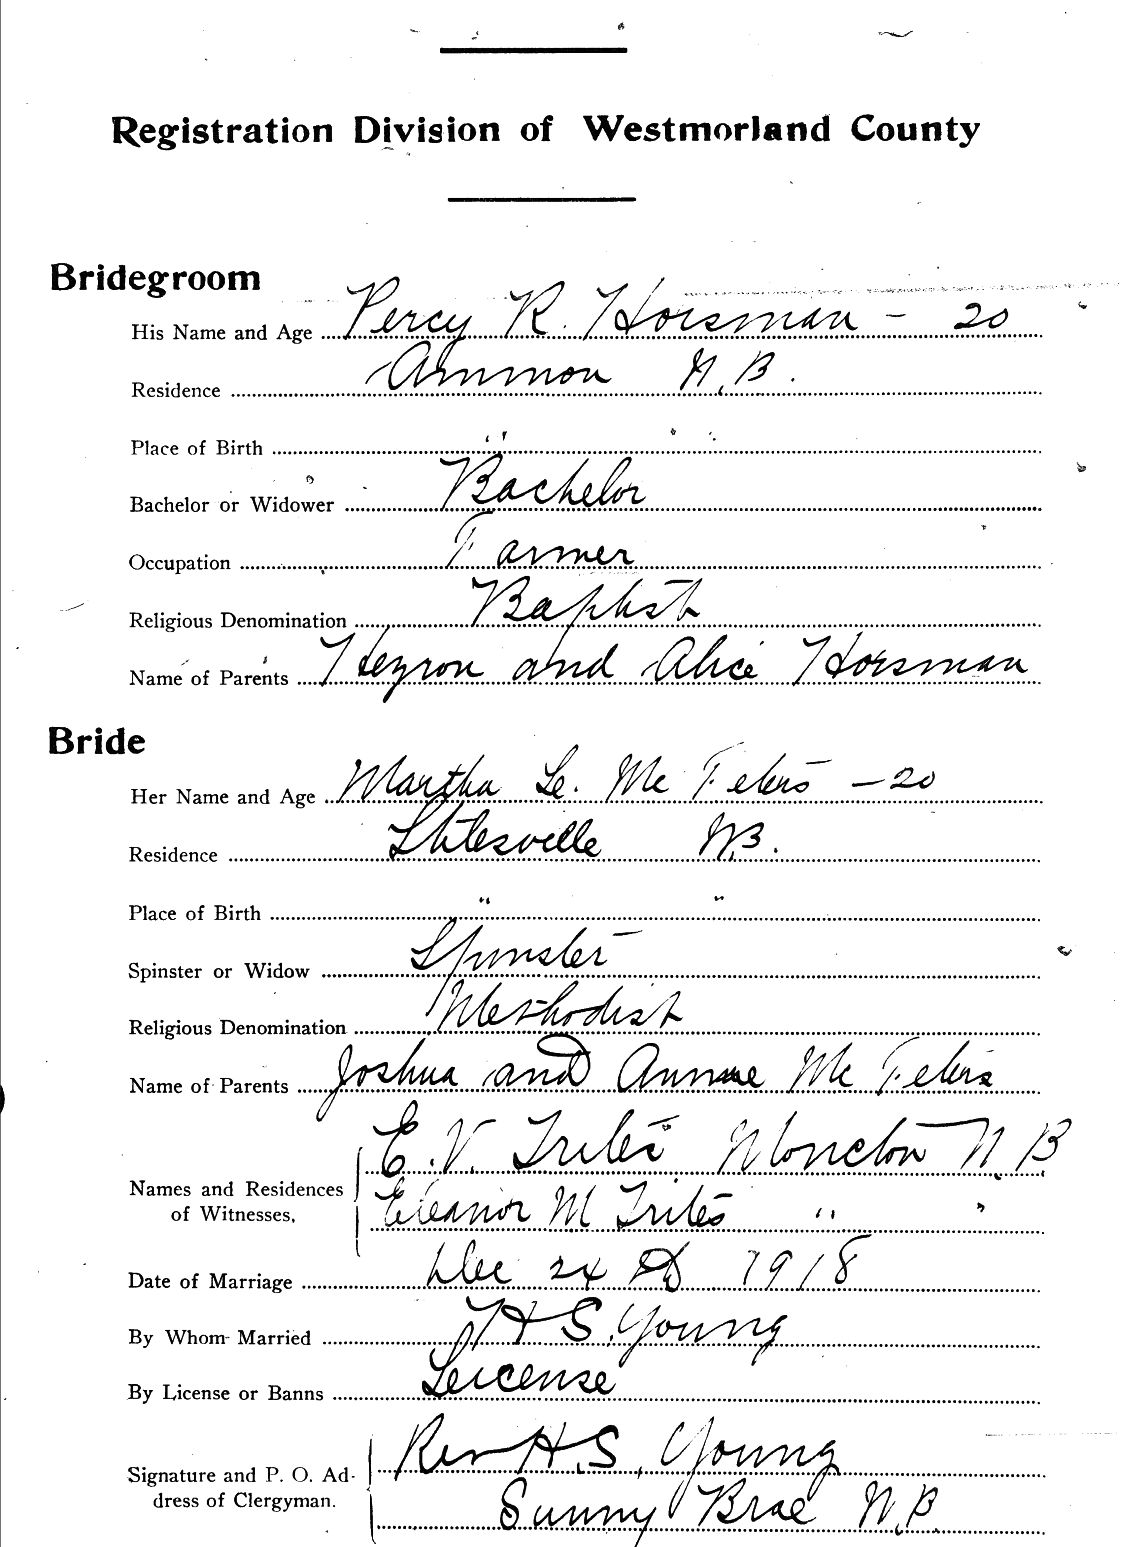 Registration Division of Westmorland County
Bridegroom
His Name and Age Percy R. Horsman - 20
Residence Ammon N.B.
Place of Birth " "
Bachelor or Widower Bachelor
Occupation Farmer
Religious Denomination Baptist
Name of Parents Hezron and Alice Horsman
Bride
Her Name and Age Martha Le. McFeters - 20
Residence Stilesville N.B.
Place of Birth " "
Spinster or Widow Spinster
Religious Denomination Methodist
Name of Parents Joshua and Annie McFeters
Names and Residences of Witnesses, E. V. Trites Moncton N.B
Eleanor M Trites " "
Date of Marriage Dec 24 1918
By Whom Married H S. Young
By License or Banns Leicense
Signature and P. O. Address of Clergyman. Rev H. S. Young
Sunny Brae N.B.